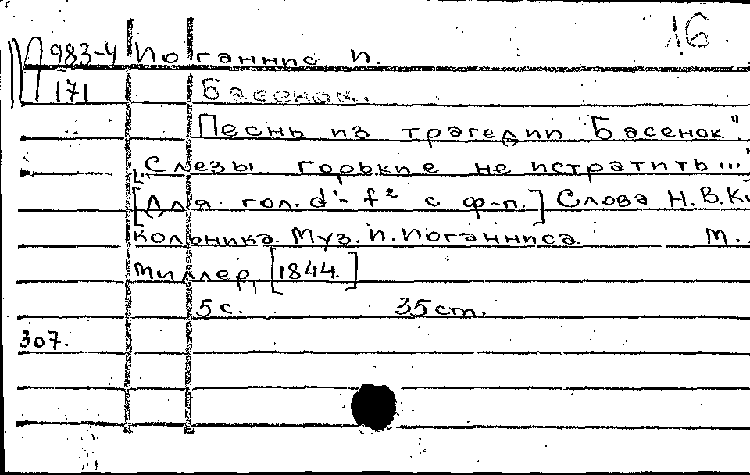 16
П 983-4 Иоганнис И.
171 Басенок.
Песнь из трагедии "Басенок".
"Слезы горькие не истратить..."
[Для гол. d¹-f² с ф-п.] Слова Н.В.Ку
кольника. Муз. И. Иоганниса. М.
Миллер, [1844]
5 с. 35 cm.
307.